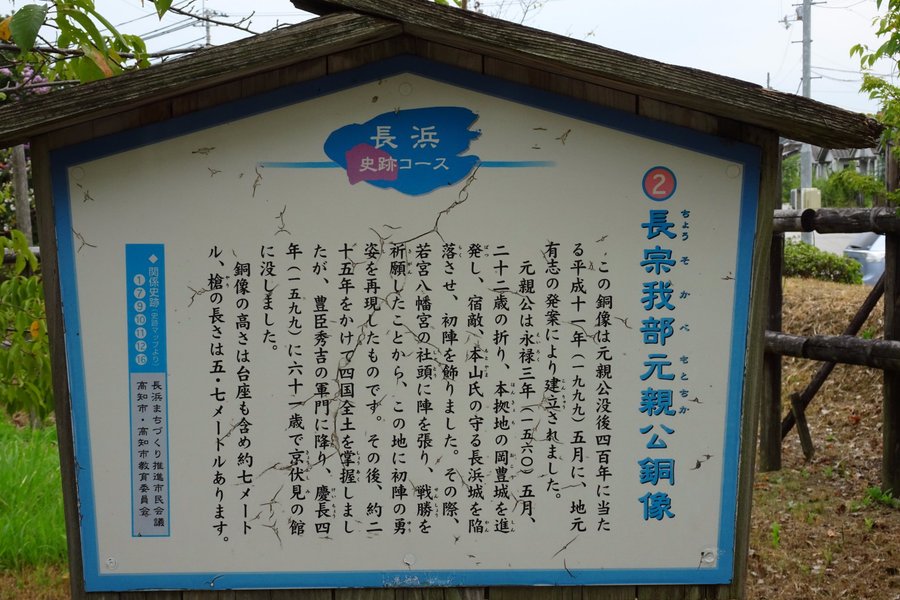 長浜
史跡コース
2
長宗我部元親公銅像
ちょうそかべもとちか
この銅像は元親公没後四百年に当た
る平成十一年（一九九九）五月に、地元
有志の発案により建立されました。
元親公は永禄三年（一五六〇）五月、
二十二歳の折り、本拠地の岡豊城を進
発し、宿敵、本山氏の守る長浜城を陥
落させ、初陣を飾りました。その際、
若宮八幡宮の社頭に陣を張り、戦勝を
祈願したことから、この地に初陣の勇
姿を再現したものです。その後、約二
十五年をかけて四国全土を掌握しまし
たが、豊臣秀吉の軍門に降り、慶長四
年（一五九九）に六十一歳で京伏見の館
に没しました。
銅像の高さは台座も含め約七メート
ル、槍の長さは五・七メートルあります。
◆関係史跡（史跡マップより）
①⑦⑨⑩⑪⑫⑯
長浜まちづくり推進市民会議
高知市・高知市教育委員会